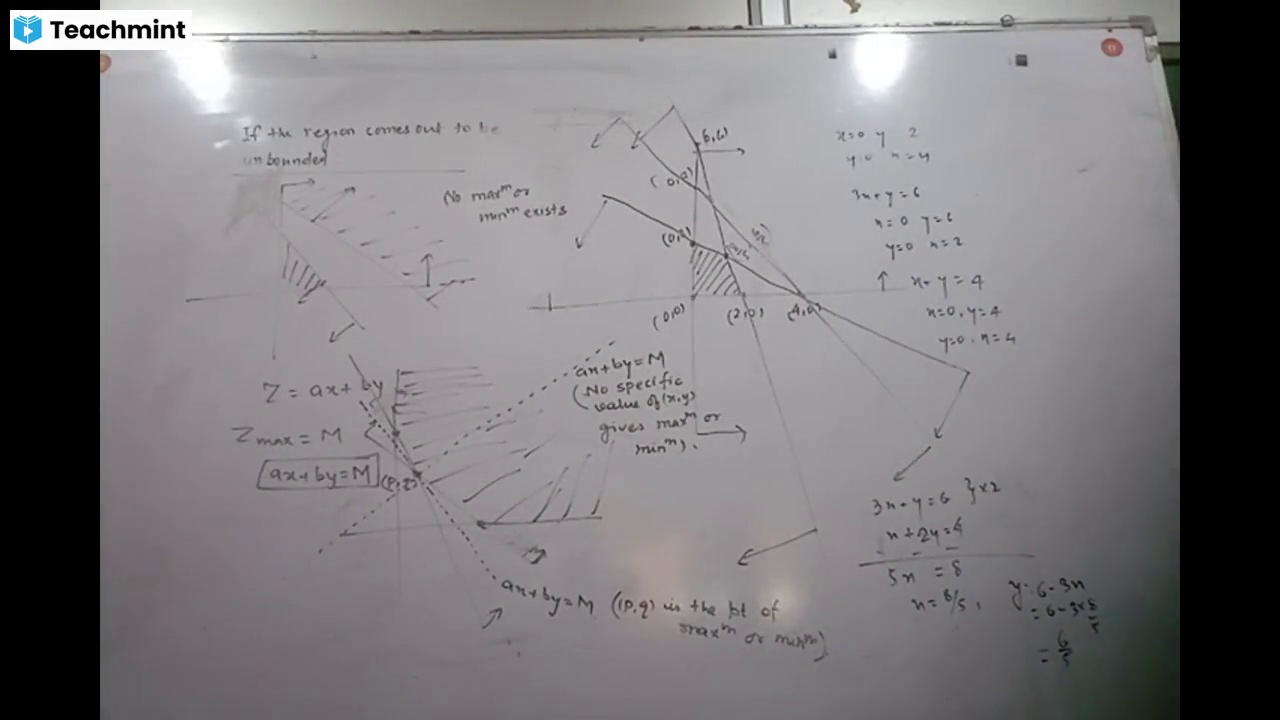 Teachmint
If the region comes out to be
unbounded
No max^m or
min^m exists
Z = ax + by
Z max = M
ax + by = M
(p,q)
ax+by=M
(No specific
value of (x,y)
gives max^m or
min^m).
ax+by=M ((p,q) is the pt of
max^m or min^m)
(0,0)
(2,0)
(4,0)
x=0 y 2
y=0 x=4
3x+y=6
x=0 y=6
y=0 x=2
x+y=4
x=0, y=4
y=0, x=4
3x+y=6 }x2
x+2y=4
5x = 8
x=8/5,
y=6-3x
=6-3x8/5
=6/5